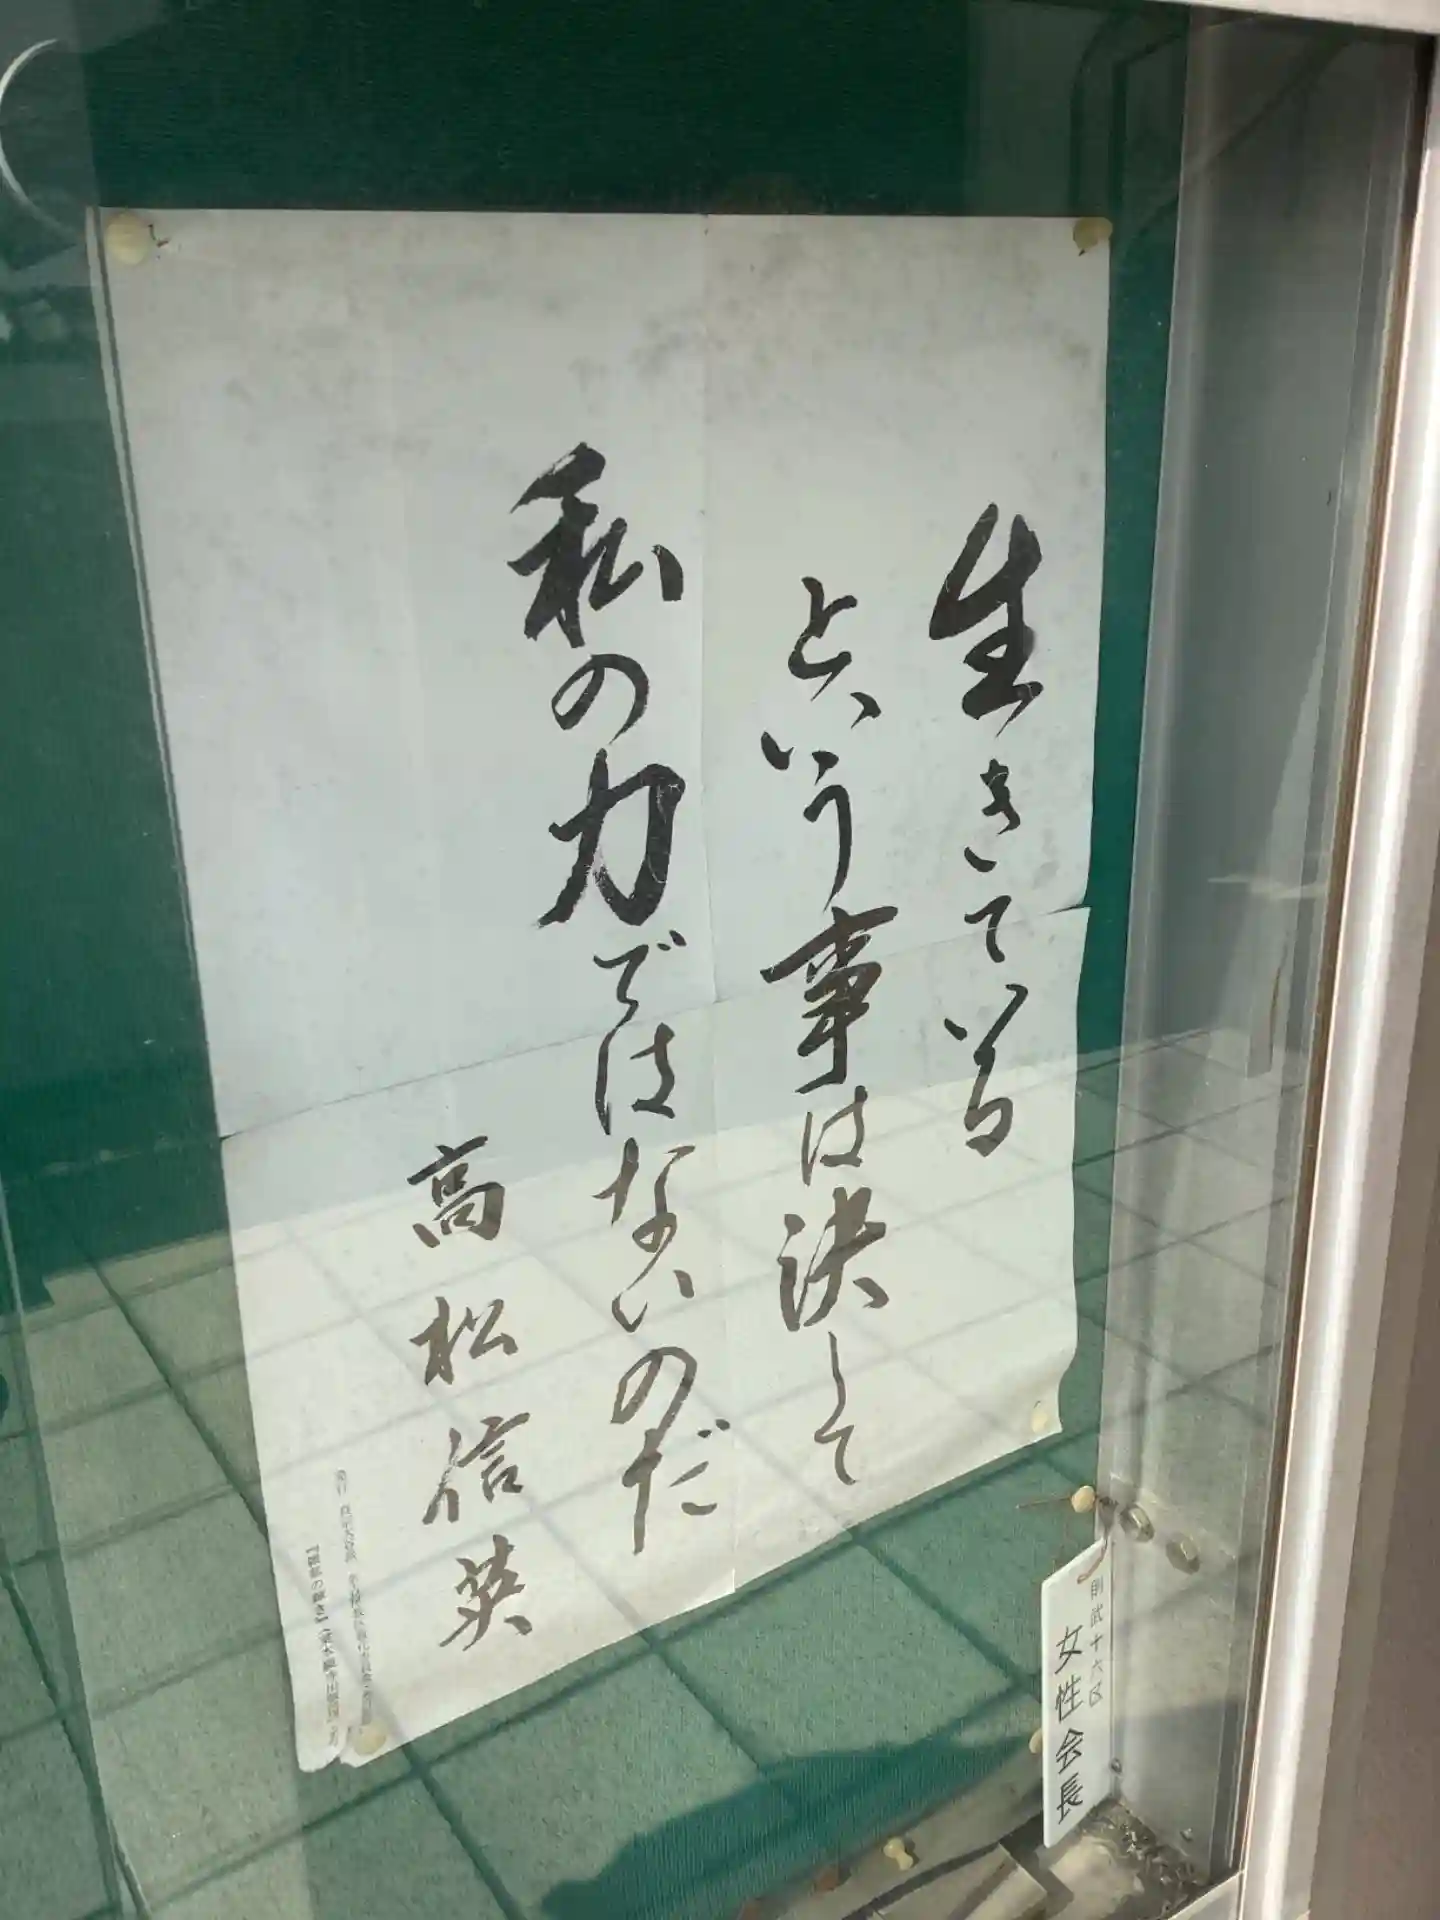 生きている
という事は決して
私の力ではないのだ
高松信英
則武十六区
女性会長